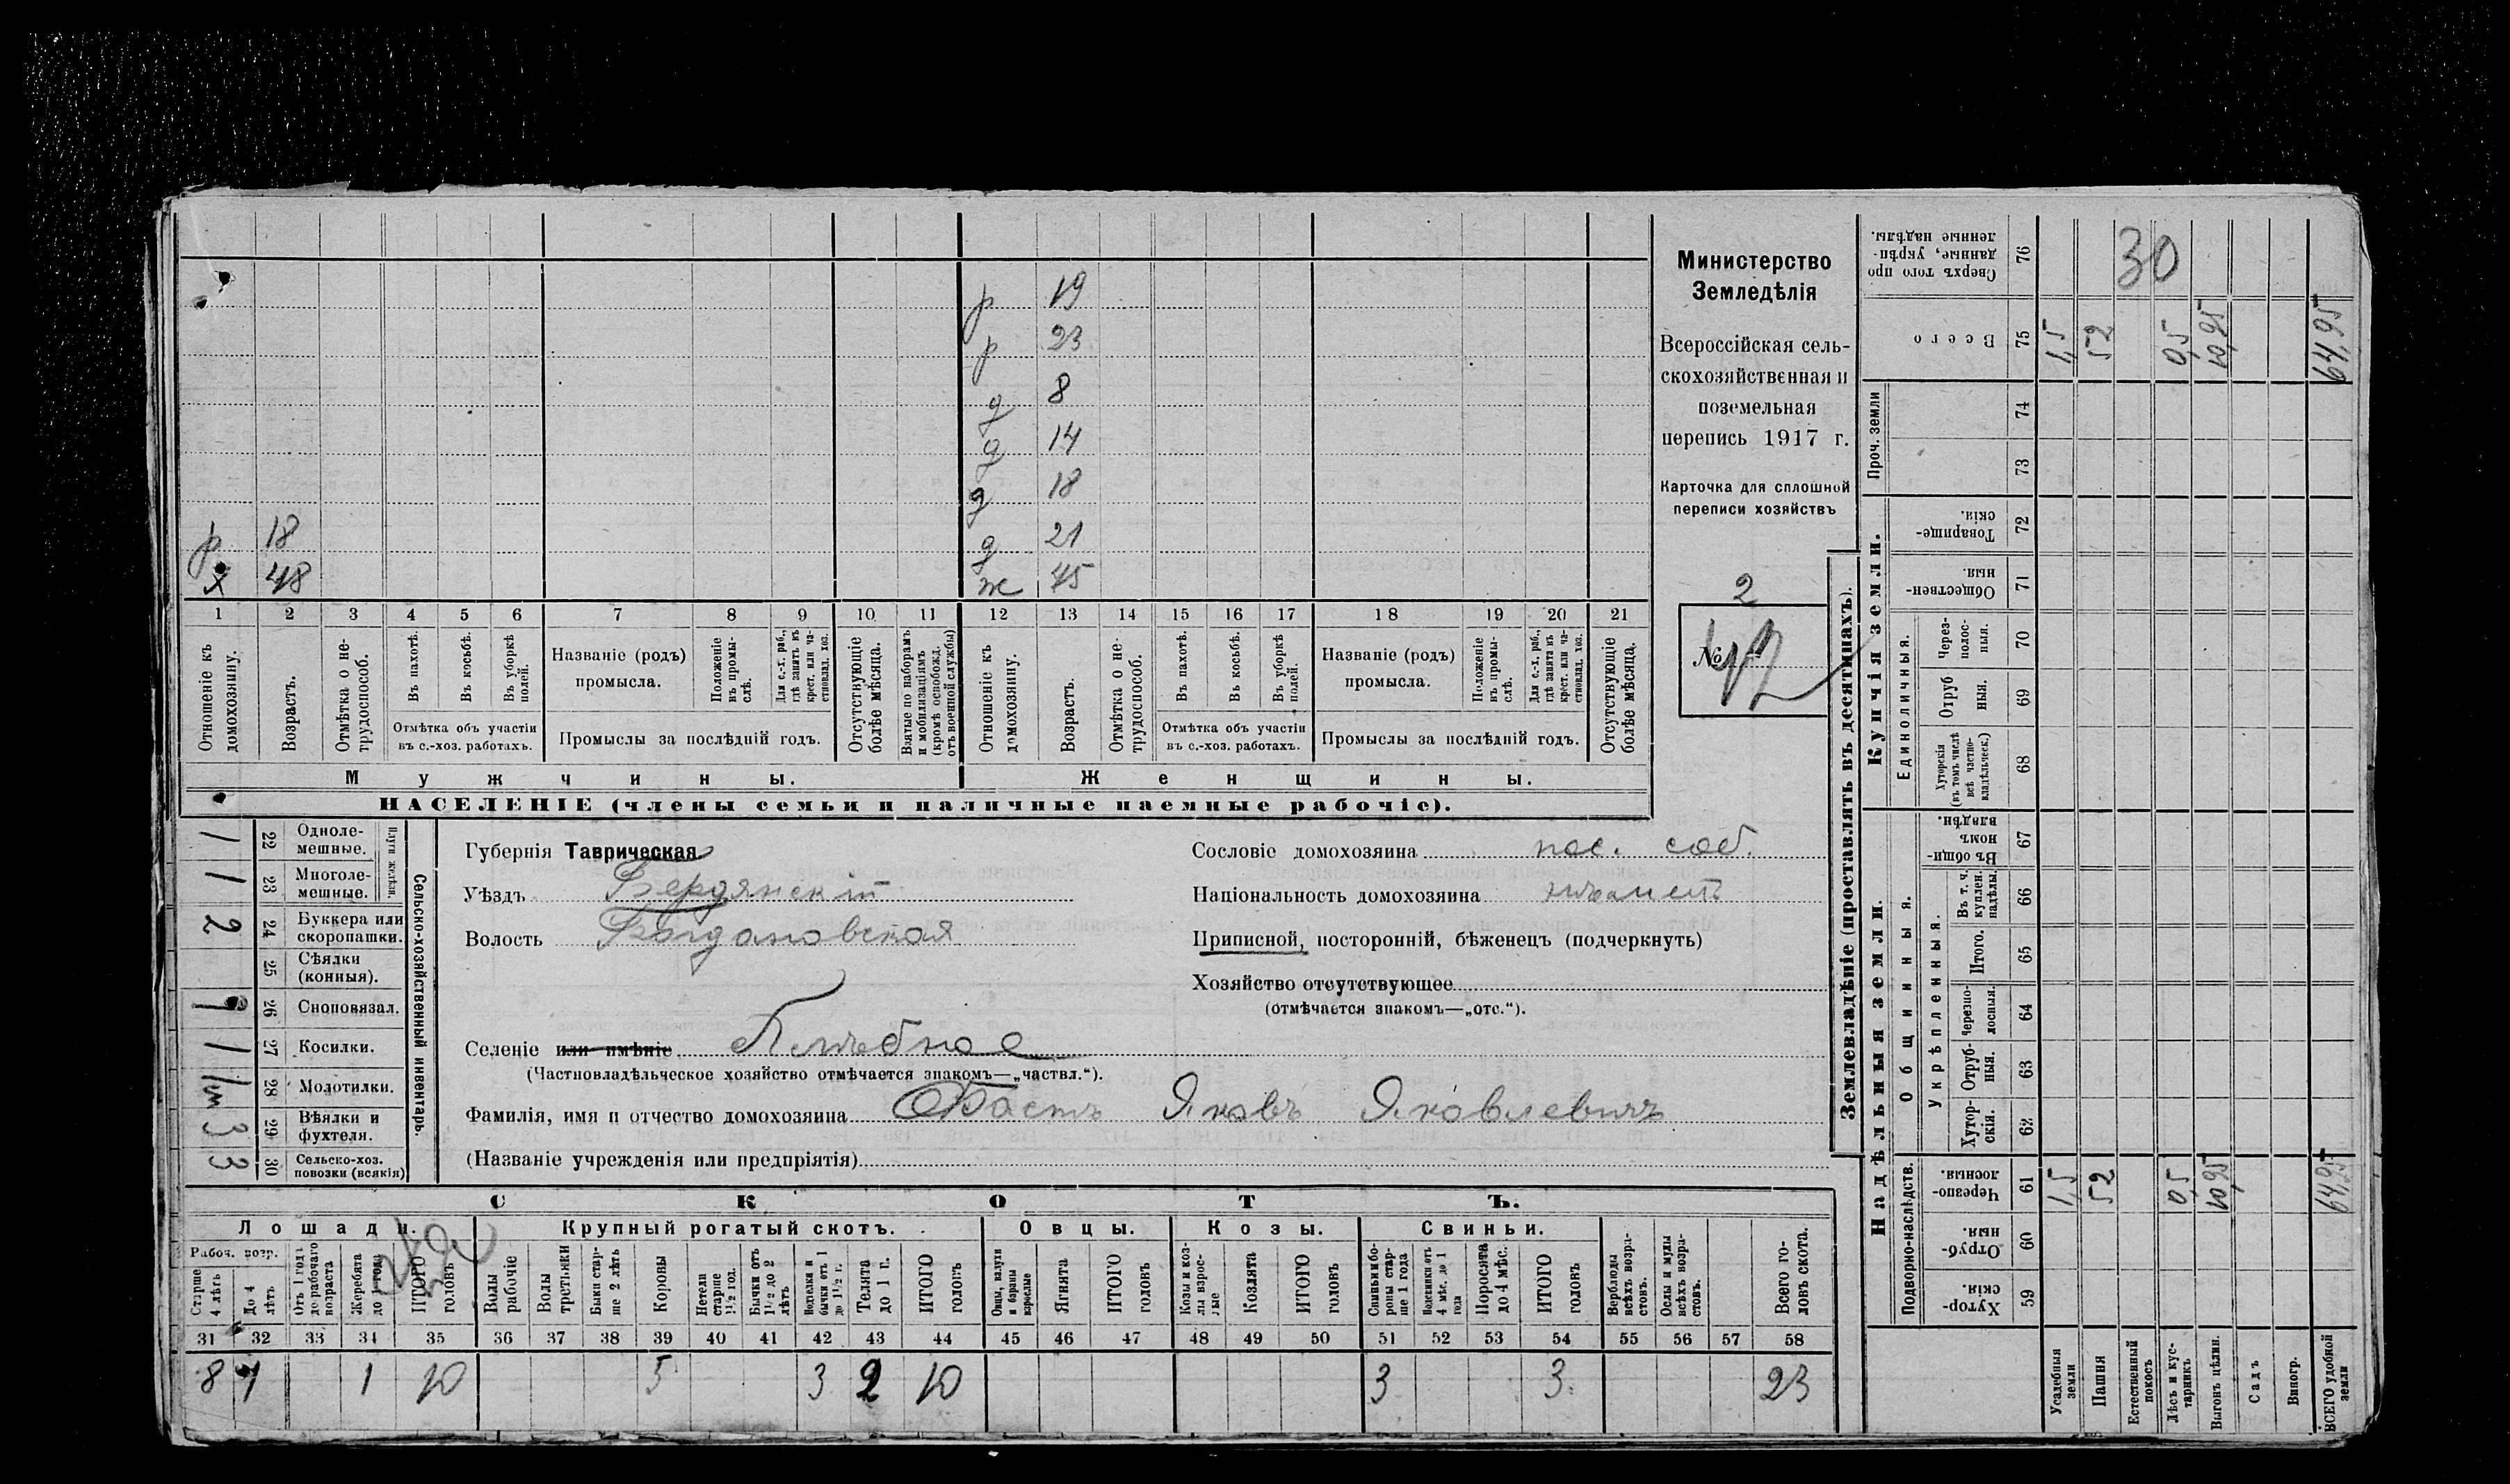 р 19
р 23
д 8
д 14
д 18
р 18 д 21
х 48 ж 45
1 2 3 4 5 6 7 8 9 10 11 12 13 14 15 16 17 18 19 20 21
Отношеніе къ домохозяину.
Возрастъ.
Отмѣтка о нетрудоспособ.
Въ пахотѣ.
Въ косьбѣ.
Въ уборкѣ полей.
Отмѣтка объ участіи въ с.-хоз. работахъ.
Названіе (родъ) промысла.
Положеніе въ промыслѣ.
Для с.-х. раб., гдѣ занятъ въ крест. или частновлад. хоз.
Промыслы за послѣдній годъ.
Отсутствующіе болѣе мѣсяца.
Взятые по наборамъ и мобилизаціямъ (кромѣ освобожд. отъ военной службы)
Отношеніе къ домохозяину.
Возрастъ.
Отмѣтка о нетрудоспособ.
Въ пахотѣ.
Въ косьбѣ.
Въ уборкѣ полей.
Отмѣтка объ участіи въ с.-хоз. работахъ.
Названіе (родъ) промысла.
Положеніе въ промыслѣ.
Для с.-х. раб., гдѣ занята въ крест. или частновлад. хоз.
Промыслы за послѣдній годъ.
Отсутствующіе болѣе мѣсяца.
Мужчины.
Женщины.
НАСЕЛЕНІЕ (члены семьи и наличные наемные рабочіе).
Министерство
Земледѣлія
Всероссійская сель-
скохозяйственная и
поземельная
перепись 1917 г.
Карточка для сплошной
переписи хозяйствъ
2
№
Сельско-хозяйственный инвентарь.
Плуги желѣзн.
1 22 Одноле-мешные.
1 23 Многоле-мешные.
2 24 Буккера или скоропашки.
25 Сѣялки (конныя).
1 26 Сноповязал.
1 27 Косилки.
28 Молотилки.
3 29 Вѣялки и фухтеля.
3 30 Сельско-хоз. повозки (всякія)
Губернія Таврическая
Уѣздъ Бердянскій
Волость Богдановская
Селеніе или имѣніе Хлѣбное
(Частновладѣльческое хозяйство отмѣчается знакомъ—„частвл.“).
Фамилія, имя и отчество домохозяина Фастъ Яковъ Яковлевичъ
(Названіе учрежденія или предпріятія)
Сословіе домохозяина пос. соб.
Національность домохозяина нѣмецъ
Приписной, посторонній, бѣженецъ (подчеркнуть)
Хозяйство отсутствующее
(отмѣчается знакомъ—„отс.“).
СКОТЪ.
Лошади. Крупный рогатый скотъ. Овцы. Козы. Свиньи.
Рабоч. возр.
Старше 4 лѣтъ
До 4 лѣтъ
Отъ 1 года до рабочаго возраста
Жеребята до 1 года
ИТОГО головъ
Волы рабочіе
Волы третьяки
Быки старше 2 лѣтъ
Коровы
Нетели старше 1½ год.
Бычки отъ 1½ до 2 лѣтъ
Подтелки и бычки отъ 1 до 1½ г.
Телята до 1 г.
ИТОГО головъ
Овцы, валухи и бараны взрослые
Ягнята
ИТОГО головъ
Козы и козлы взрослые
Козлята
ИТОГО головъ
Свиньи и боровы старше 1 года
Подсвинки отъ 4 мѣс. до 1 года
Поросята до 4 мѣс.
ИТОГО головъ
Верблюды всѣхъ возрастовъ.
Ослы и мулы всѣхъ возрастовъ.
Всего головъ скота.
31 32 33 34 35 36 37 38 39 40 41 42 43 44 45 46 47 48 49 50 51 52 53 54 55 56 57 58
8 1 1 10 5 3 2 10 3 3 23
Землевладѣніе (проставлять въ десятинахъ).
Сверхъ того проданные, укрѣпленные надѣлы. 76 30
Всего 75 1,5 52 0,5 10,95 64,95
Проч. земли
74
73
Купчія земли.
Товарищескія. 72
Общественныя. 71
Единоличныя.
Черезполосныя. 70
Отрубныя. 69
Хуторскія (въ томъ числѣ всѣ частновладѣльческ.) 68
Надѣльныя земли.
Общинныя.
Въ общинномъ владѣн. 67
Укрѣпленныя.
Въ т. ч. куплен. надѣлы. 66
Итого. 65
Черезполосныя. 64
Отрубныя. 63
Хуторскія. 62
Подворно-наслѣдств.
Черезполосныя. 61 1,5 52 0,5 10,95 64,95
Отрубныя. 60
Хуторскія. 59
Усадебныя земли
Пашня
Естественный покосъ
Лѣсъ и кустарникъ
Выгонъ цѣлин.
Садъ
Виногр.
ВСЕГО удобной земли